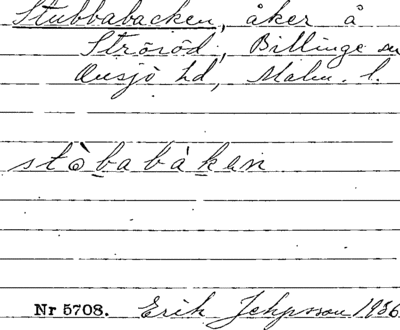 Stubbabacken, åker å
Ströröd, Billinge sn
Onsjö hd, Malm. l.
stòbabàkan
Nr 5708. Erik Jeppsson 1936